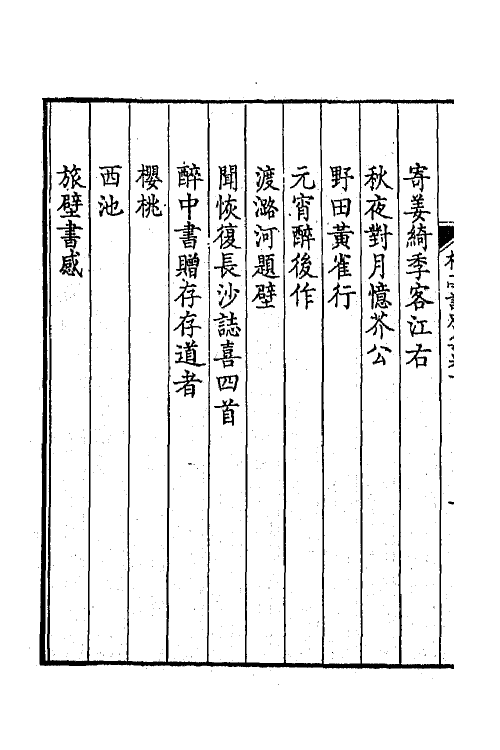 寄姜綺季客江右
秋夜對月憶芥公
野田黃雀行
元宵醉後作
渡潞河題壁
聞恢復長沙誌喜四首
醉中書贈存存道者
櫻桃
西池
旅壁書感